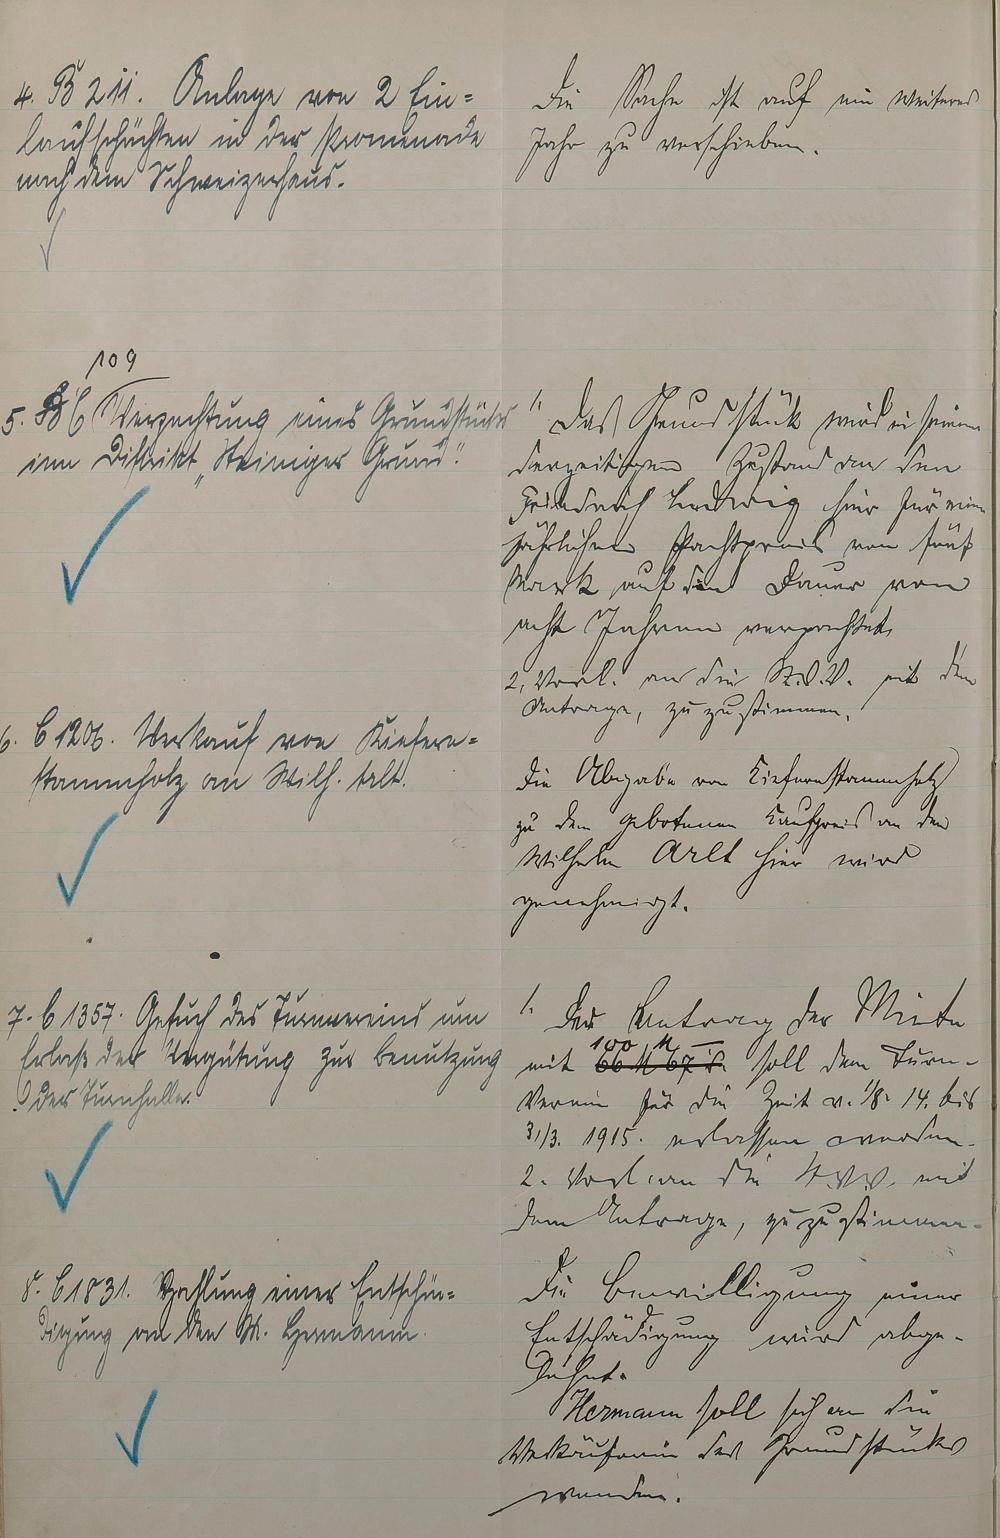 4. B 211. Anlage von 2 Ein=
laufschächten in der Promenade
nach dem Schweizerhaus.
Die Sache ist auf ein weiteres
Jahr zu verschieben.
109
5. B 6 Verpachtung eines Grundstücks
im Distrikt „Steiniger Grund".
1. Das Grundstück wird in seinem
derzeitigen Zustand an den
Friedrich Ludwig hier für einen
jährlichen Pachtpreis von fünf
Mark auf die Dauer von
acht Jahren verpachtet.
2, Vorl. an die St.V.V. mit dem
Antrage, zuzustimmen.
6. C 1206. Verkauf von Kiefern=
stammholz an Wilh. Arlt.
Die Abgabe von Kiefernstammholz
zu dem gebotenen Kaufpreis an den
Wilhelm Arlt hier wird
genehmigt.
7. C 1357. Gesuch des Turnvereins um
Erlaß der Vergütung zur Benutzung
der Turnhalle.
1. Der Betrag der Miete
100 M
mit 66 M 67 d. soll dem Turn-
Verein für die Zeit v. 1/8. 14. bis
31/3. 1915. erlassen werden.
2. Vorl. an die St.V.V. mit
dem Antrage, zuzustimmen.
8. C 1831. Zahlung einer Entschä=
digung an den M. Hermann.
Die Bewilligung einer
Entschädigung wird abge-
lehnt.
Hermann soll sich an die
Verkäuferin des Grundstücks
wenden.